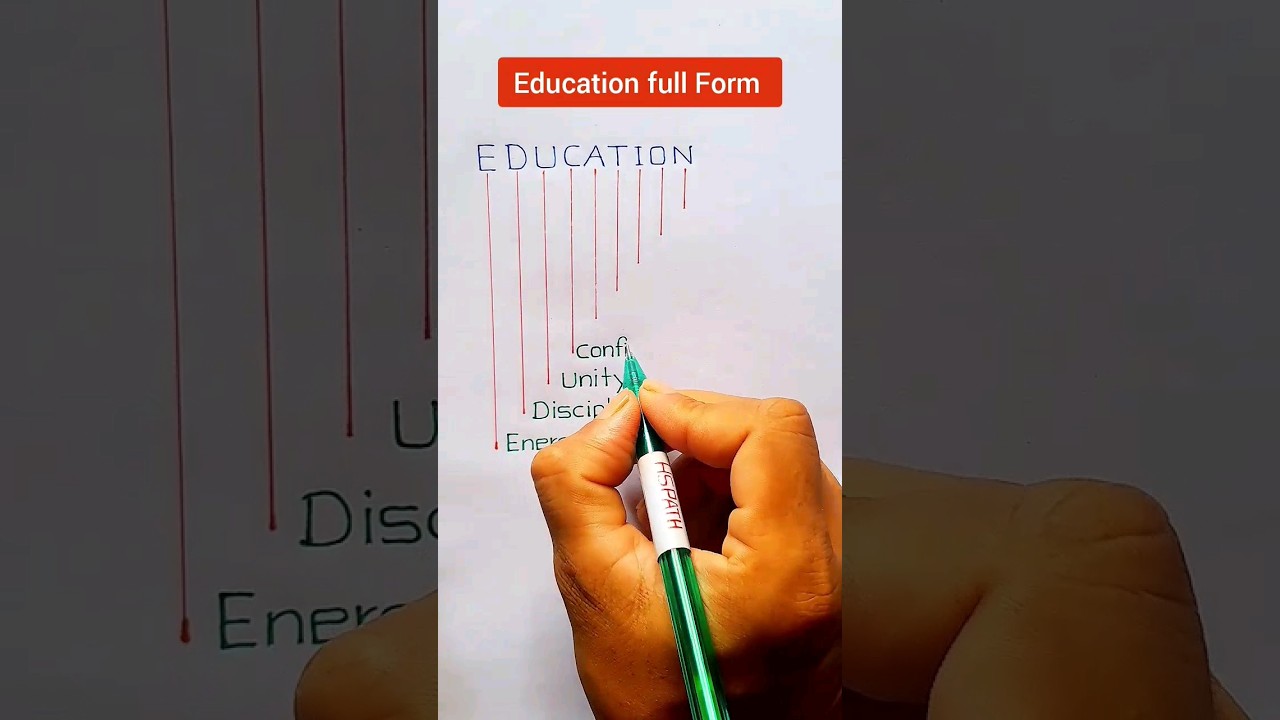 Education full Form
EDUCATION
Confi
Unity
Discipl
Ener
HSPATH